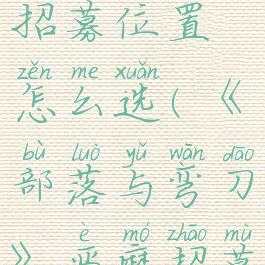 招募位置
zěn me xuǎn
怎么选(《
bù luò yǔ wān dāo
部落与弯刀
è mó zhāo mù
》恶魔招募